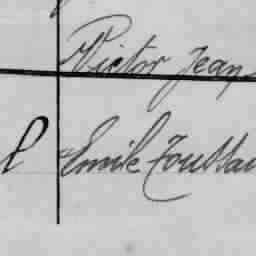 Victor Jean
l Emile Toussai